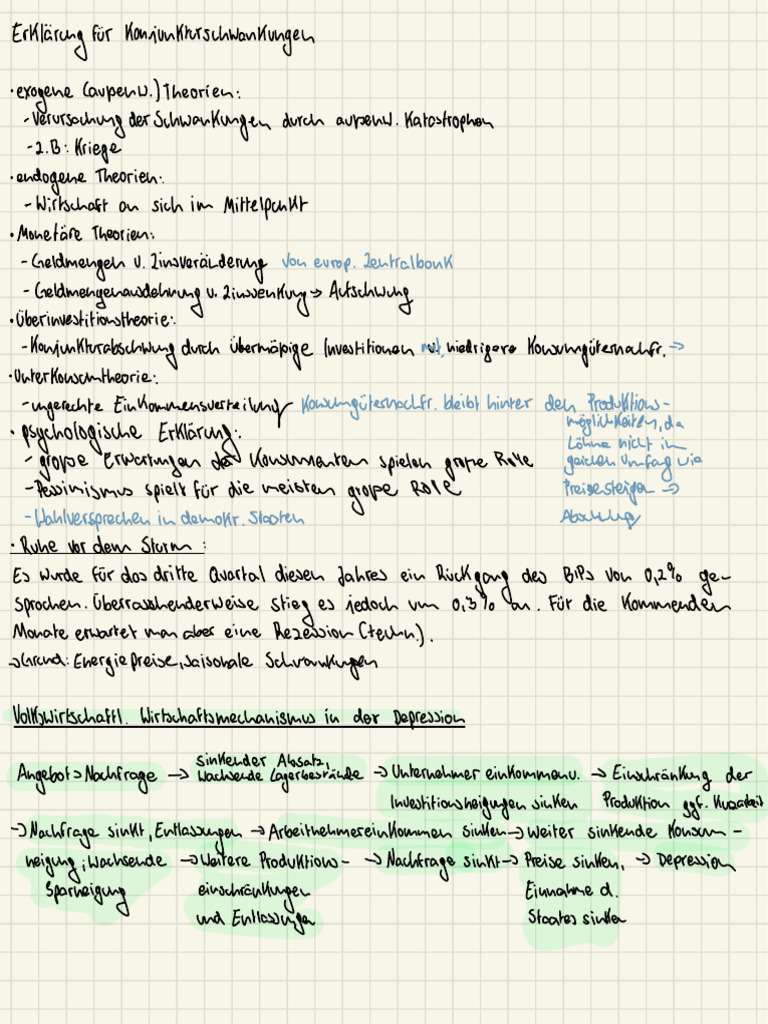 Erklärung für Konjunkturschwankungen
· exogene (außenw.) Theorien:
- Verursachung der Schwankungen durch außenw. Katastrophen
- z.B: Kriege
· endogene Theorien:
- Wirtschaft an sich im Mittelpunkt
· Monetäre Theorien:
- Geldmengen u. Zinsveränderung von europ. Zentralbank
- Geldmengenausdehnung u. Zinssenkung → Aufschwung
· Überinvestitionstheorie:
- Konjunkturabschwung durch übermäßige Investitionen u. niedrigere Konsumgüternachfr. →
· Unterkonsumtheorie:
- ungerechte Einkommensverteilung Konsumgüternachfr. bleibt hinter den Produktions-
möglichkeiten, da
Löhne nicht im
gleichen Umfang wie
Preise steigen →
Abschwung
· psychologische Erklärung:
- große Erwartungen der Konsumenten spielen große Rolle
- Pessimismus spielt für die meisten große Rolle
- Wahlversprechen in demokr. Staaten
· Ruhe vor dem Sturm :
Es wurde für das dritte Quartal diesen Jahres ein Rückgang des BIPs von 0,2% ge-
sprochen. Überraschenderweise stieg es jedoch um 0,3% an. Für die kommenden
Monate erwartet man aber eine Rezession (techn.).
→ Grund: Energiepreise, saisonale Schwankungen
Volkswirtschaftl. Wirtschaftsmechanismus in der Depression
Angebot > Nachfrage → sinkender Absatz, wachsende Lagerbestände → Unternehmereinkommen u. → Einschränkung der
Investitionsneigungen sinken Produktion ggf. Kurzarbeit
→ Nachfrage sinkt, Entlassungen → Arbeitnehmereinkommen sinken → Weiter sinkende Konsum-
neigung, wachsende → Weitere Produktions- → Nachfrage sinkt → Preise sinken, → Depression
Sparneigung einschränkungen Einnahme d.
und Entlassungen Staates sinken